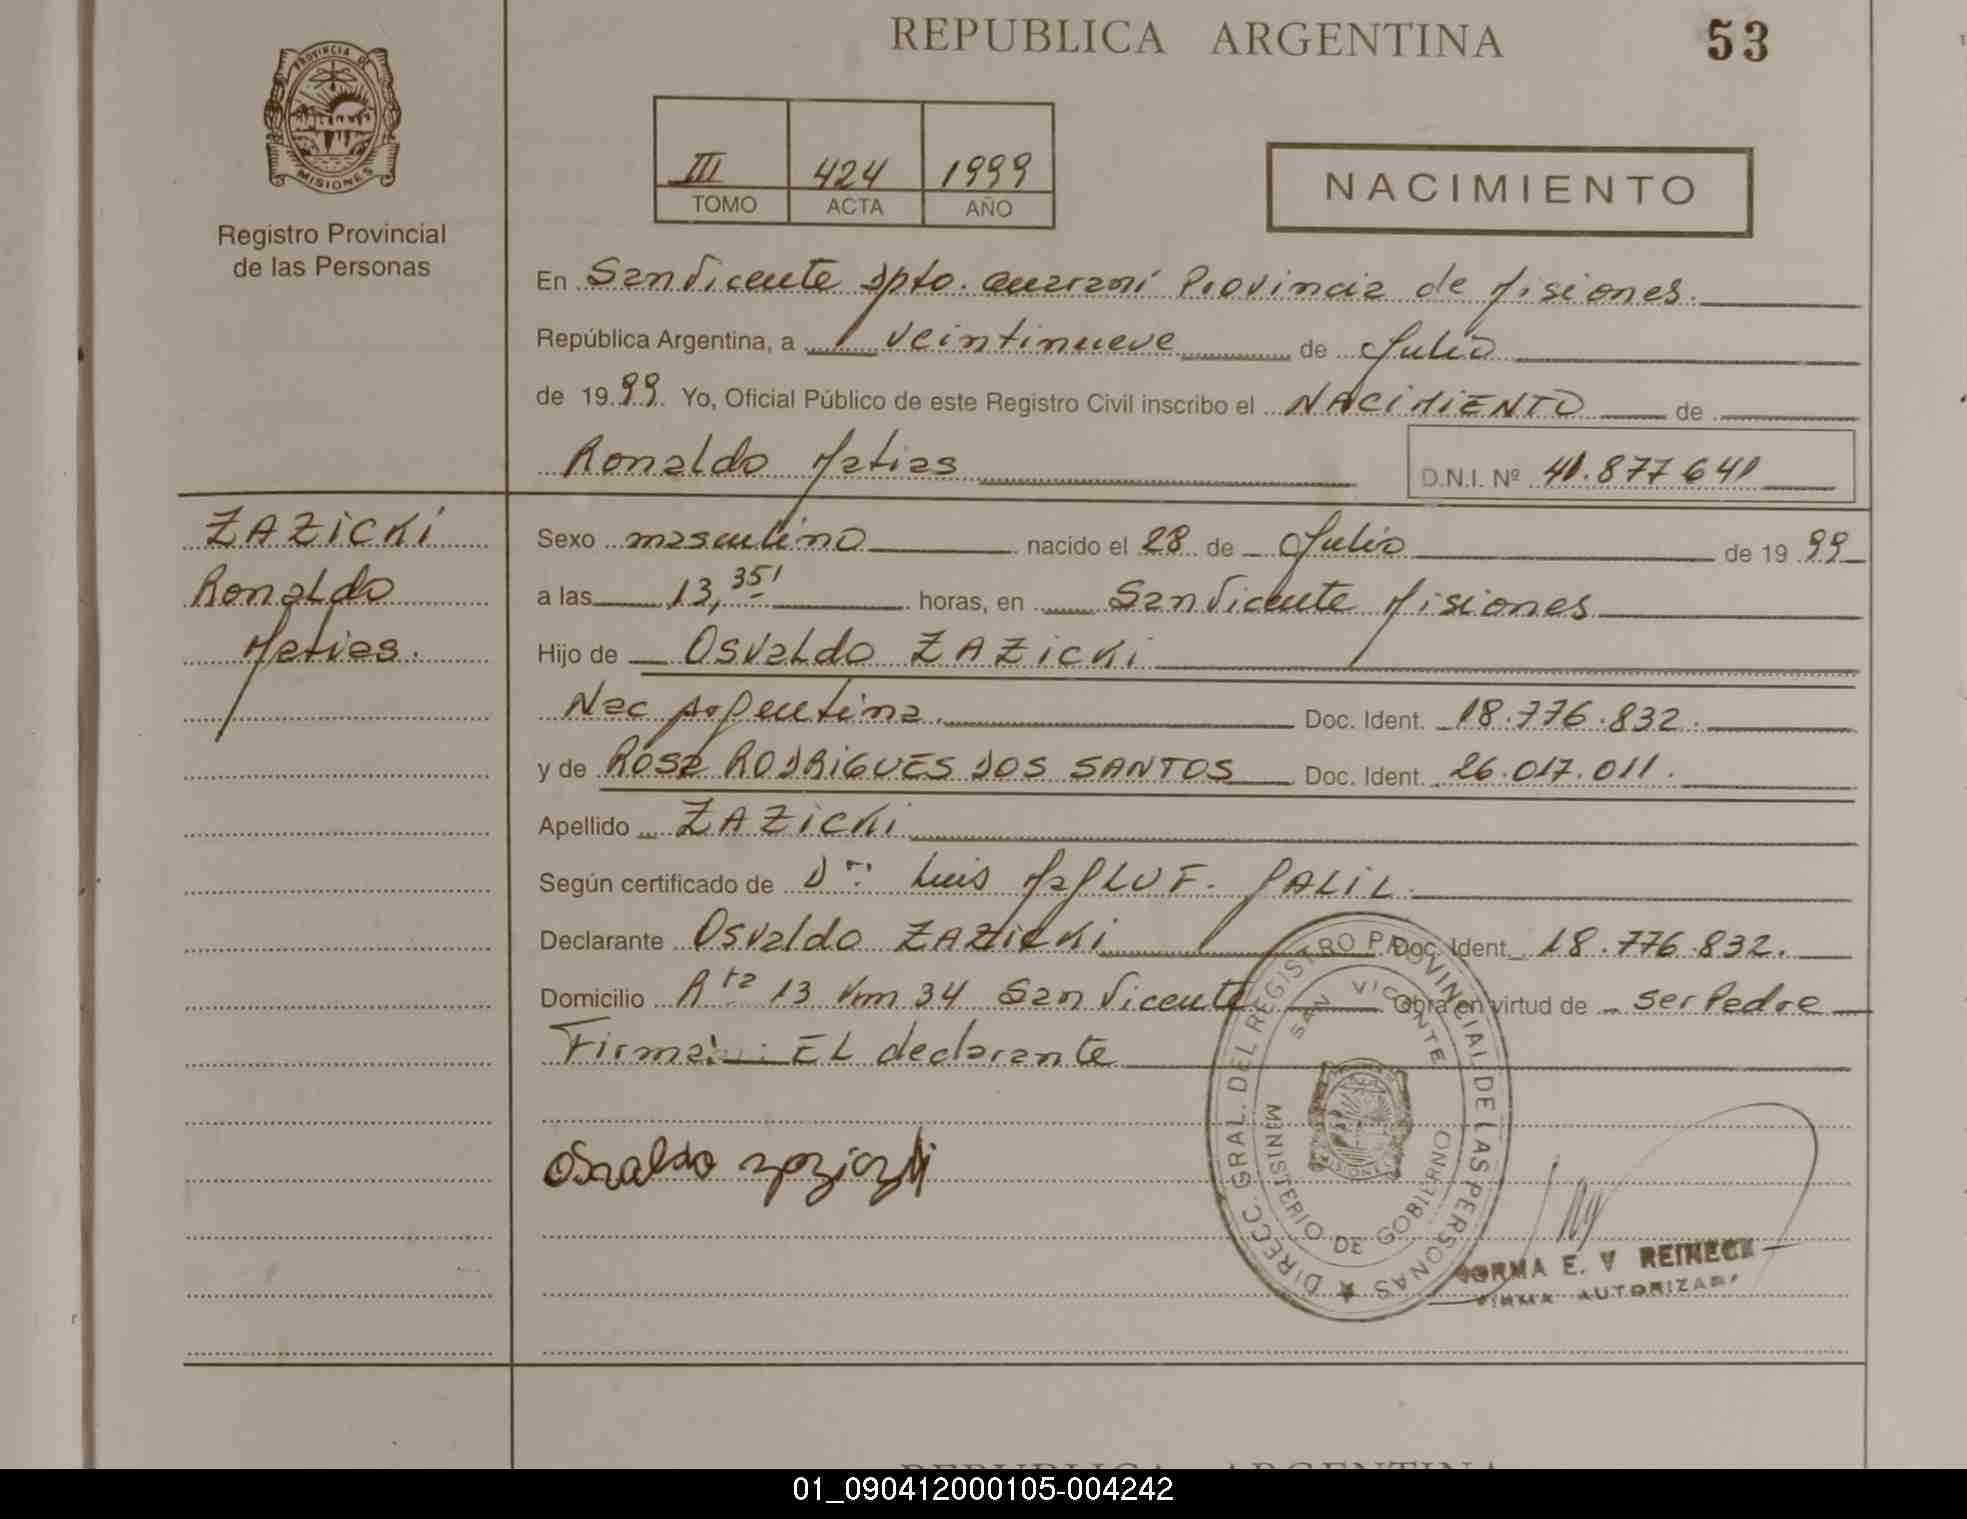 REPUBLICA ARGENTINA
53
PROVINCIA DE
MISIONES
Registro Provincial
de las Personas
III 424 1999
TOMO ACTA AÑO
NACIMIENTO
En San Vicente Dpto. Guaraní Provincia de Misiones.
República Argentina, a veintinueve de Julio
de 1999 Yo, Oficial Público de este Registro Civil inscribo el NACIMIENTO de
Ronaldo Matias
D.N.I. Nº 41.877641
ZAZiCKi
Ronaldo
Matias.
Sexo masculino nacido el 28 de Julio de 1999
a las 13,35' horas, en San Vicente Misiones
Hijo de Osvaldo ZAZicKi
Nac Argentina. Doc. Ident. 18.776.832.
y de Rosa RODRiGUES DOS SANTOS Doc. Ident. 26.017.011.
Apellido ZAZicKi
Según certificado de Dr. Luis MaLUF. JALiL.
Declarante Osvaldo ZAZicKi Doc. Ident. 18.776.832.
Domicilio Rta 13 Km 34 San Vicente Obra en virtud de ser Padre
Firma: EL declarante
Osvaldo
DIRECC. GRAL. DEL REGISTRO PROVINCIAL DE LAS PERSONAS
SAN VICENTE
MINISTERIO DE GOBIERNO
MISIONES
NORMA E. V REINECK
FIRMA AUTORIZADA
REPUBLICA ARGENTINA
01_090412000105-004242